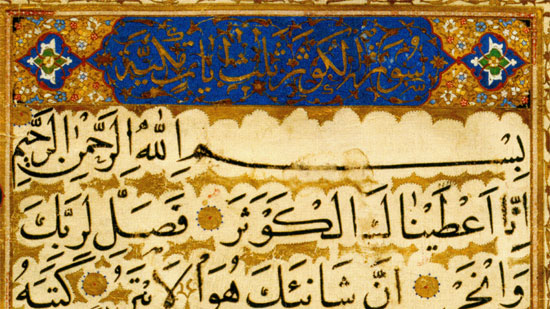 سورة الكوثر ثلث ايات مكية
بسم الله الرحمن الرحيم
انا اعطيناك الكوثر فصل لربك
وانحر ان شانئك هو الابتر كتبه